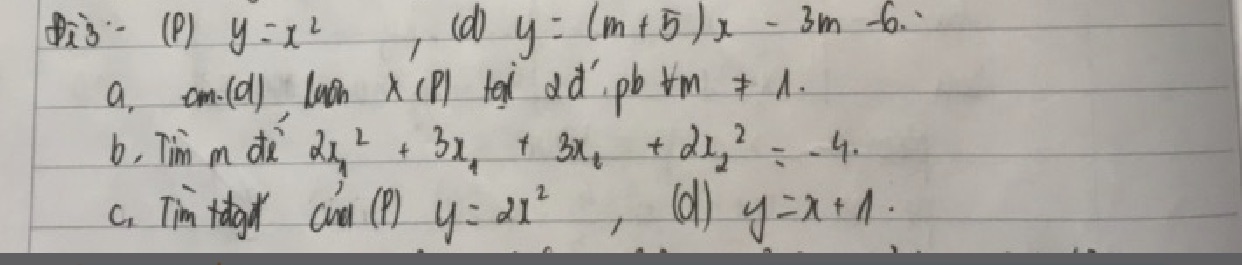 Bài 3:- (P) y = x² , (d) y = (m + 5)x - 3m - 6.
a, cm (d) luôn x (P) tại 2đ' pb ∀m ≠ 1.
b, Tìm m để 2x₁² + 3x₁ + 3x₂ + 2x₂² = -4.
c, Tìm tđgđ của (P) y = 2x² , (d) y = x + 1.